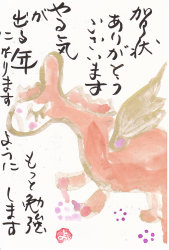 賀状
ありがとう
ございます
やる気
が
出る年
になります
ように
もっと勉強
します